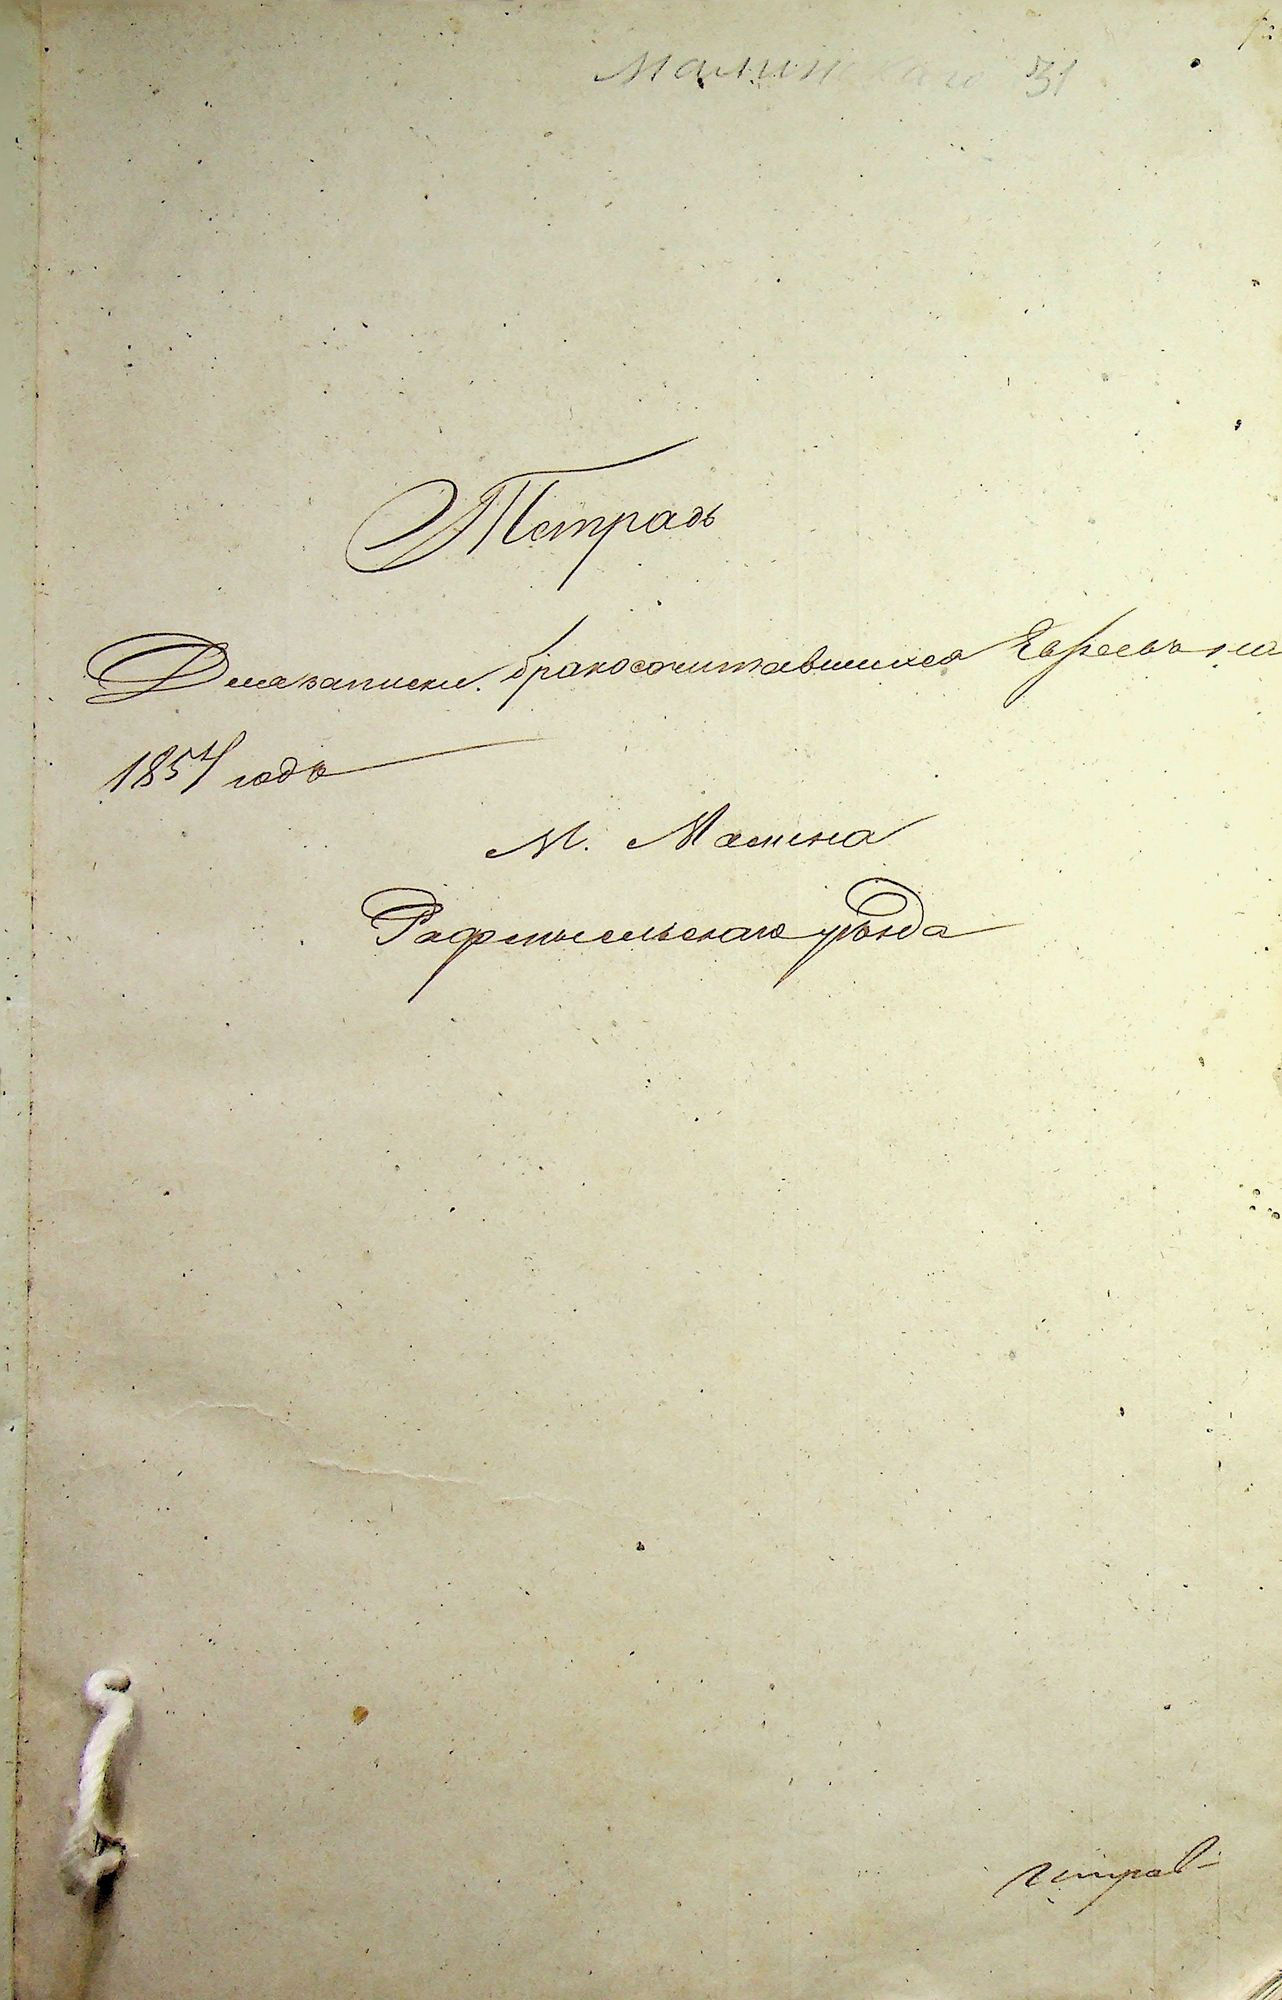 Малинскаго 31
Тетрадь
Для записки бракосочитавшихся Евреевъ на
1854 годъ
М. Малина
Радомысльскаго уѣзда